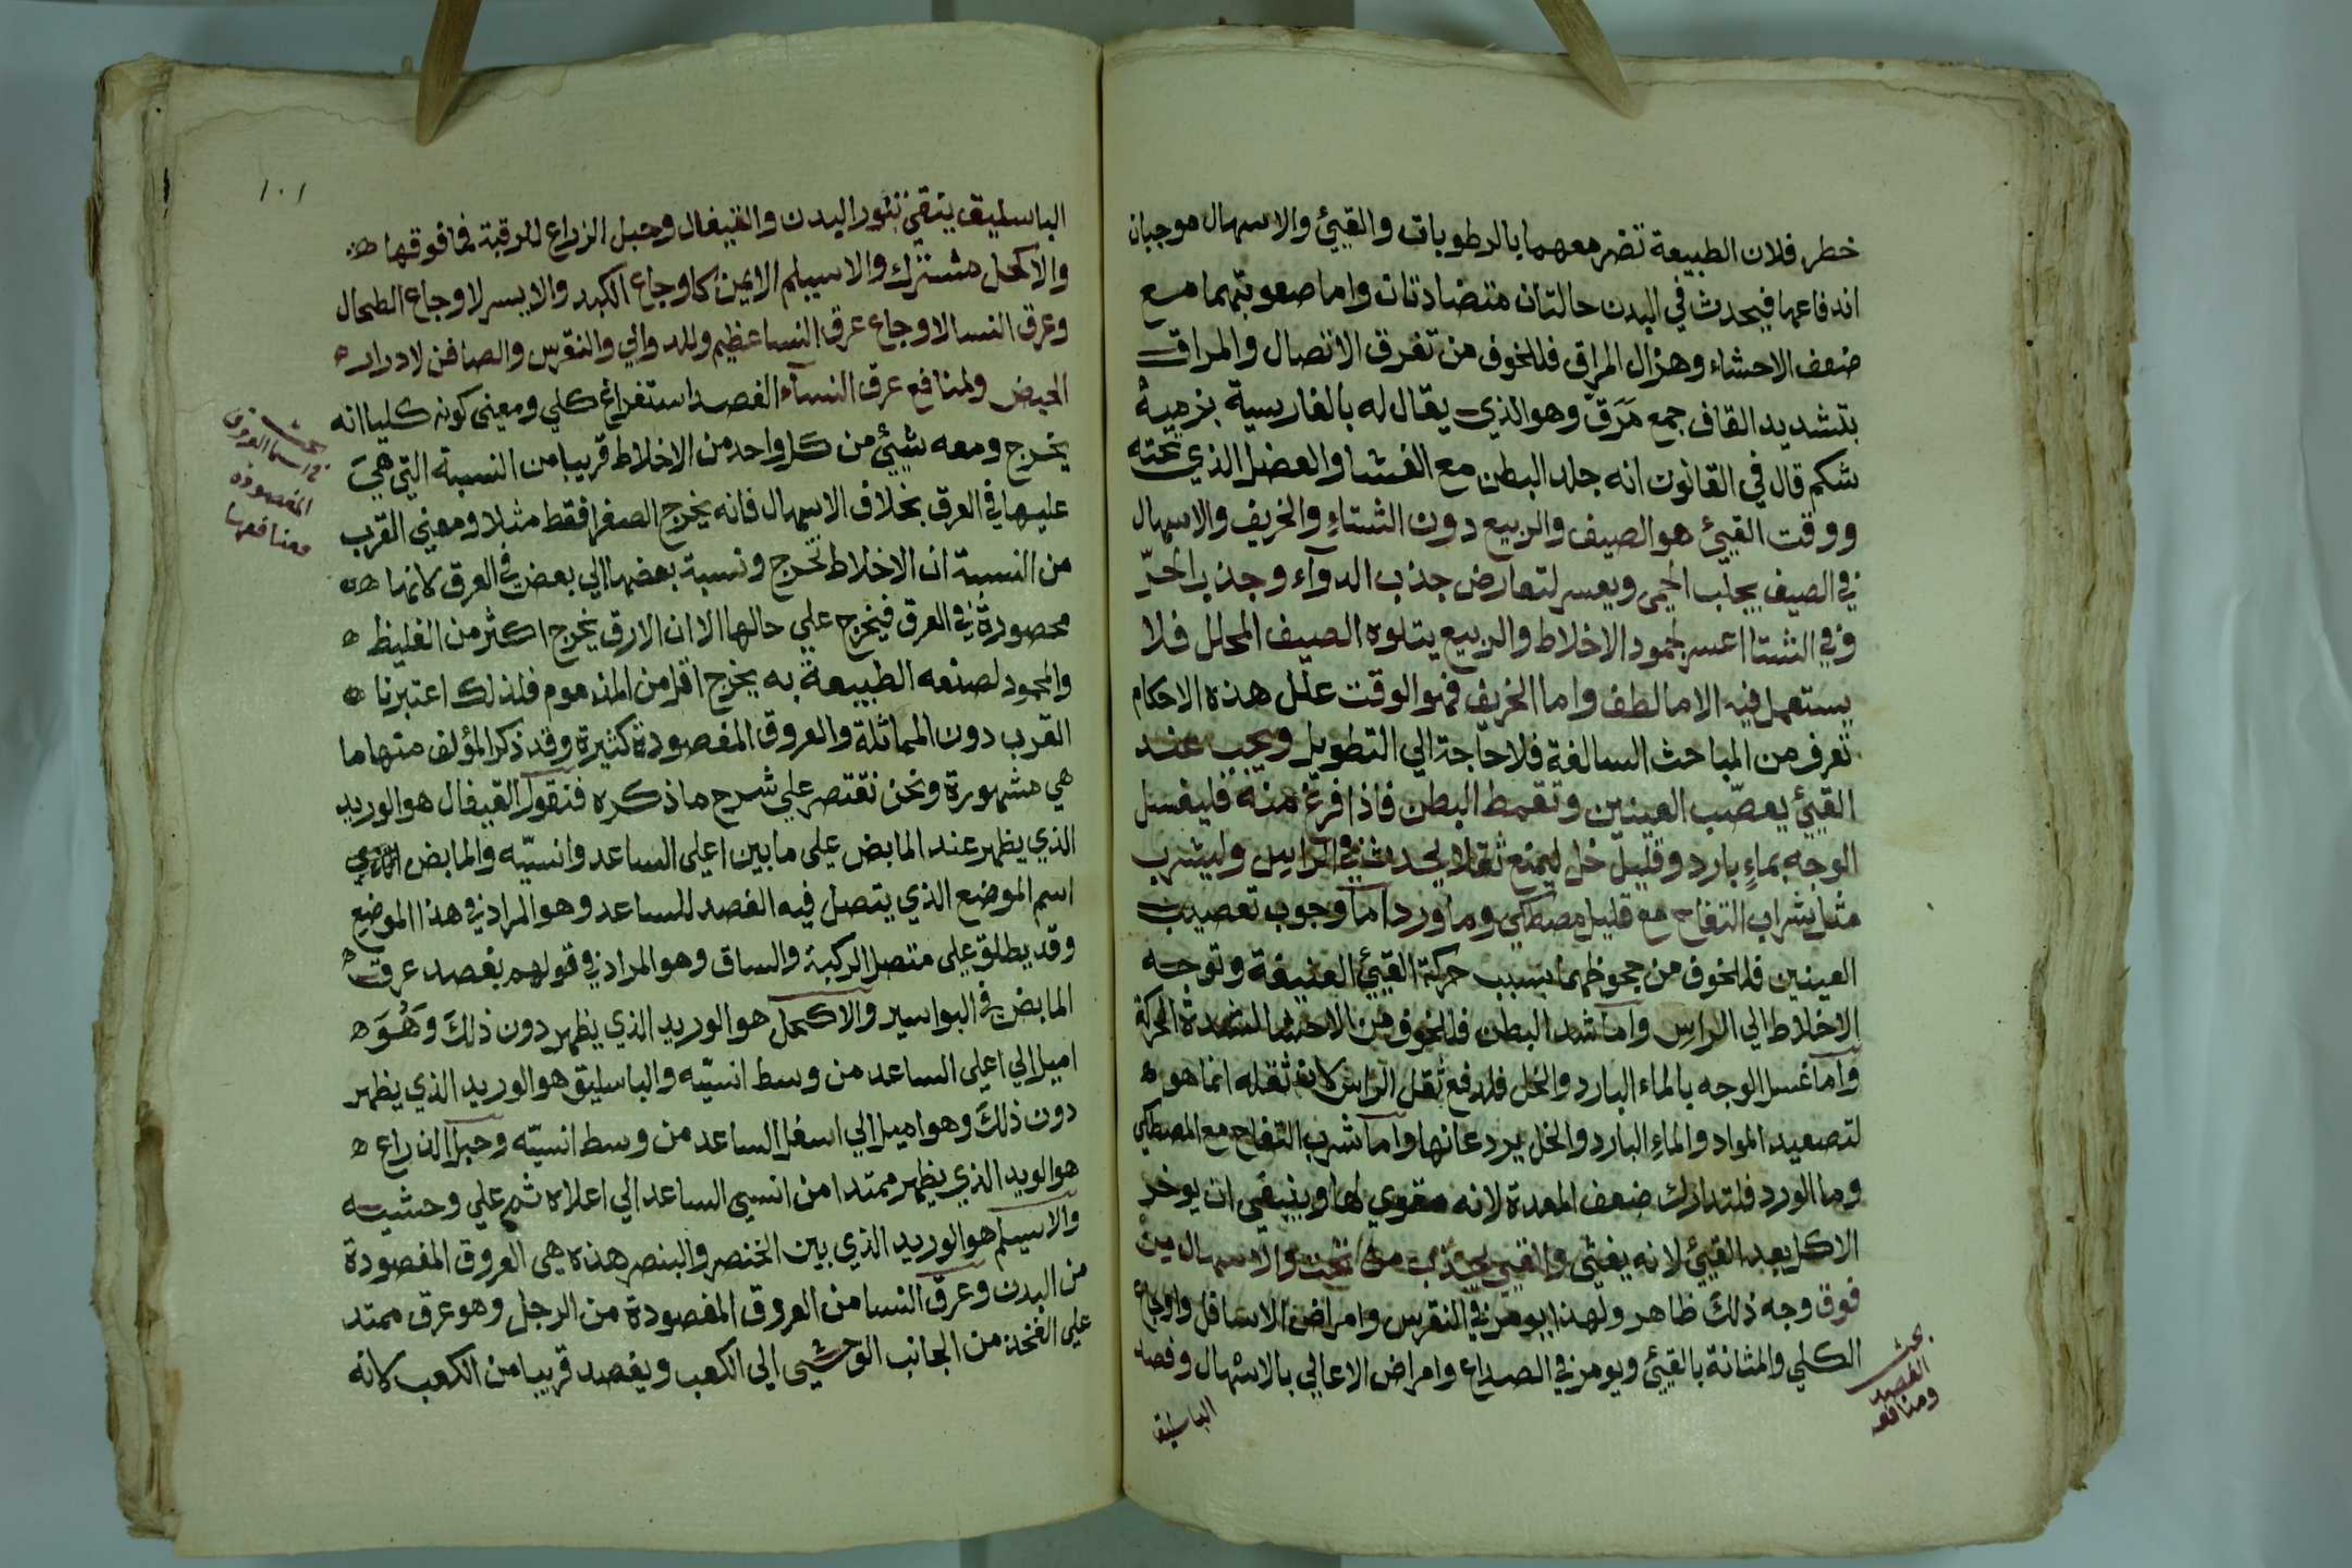 خطر فلان الطبيعة تضر معهما بالرطوبات والقيئ والاسهال موجبان
اندفاعها فيحدث في البدن حالتان متضادتان واما صعوبتهما مع
ضعف الاحشاء وهزال المراق فللخوف من تفرق الاتصال والمراق
بتشديد القاف جمع مَرَقّ وهو الذي يقال له بالفارسية بزمية
شكم قال في القانون انه جلد البطن مع الغشا والعضل الذي تحته
ووقت القيئ هو الصيف والربيع دون الشتاء والخريف والاسهال
في الصيف يجلب الحمى ويعسر لتعارض جذب الدوآء وجذب الحرّ
وفي الشتا اعسر لجمود الاخلاط والربيع يتلوه الصيف المحلل فلا
يستعمل فيه الا ما لطف واما الخريف فهو الوقت علل هذه الاحكام
تعرف من المباحث السالفة فلا حاجة الي التطويل ويجب عند
القيئ يعصّب العينين وتقمط البطن فاذا فرغ منه فليغسل
الوجه بماءٍ بارد وقليل خل ليمنع ثقلا يحدث في الراس وليشرب
مثل شراب التفاح مع قليل مصطكي وماورد اما وجوب تعصيب
العينين فللخوف من جحوظهما بسبب حركة القيئ العنيفة وتوجه
الاخلاط الي الراس واما شد البطن فللخوف من الاحشا لشدة الحركة
واما غسل الوجه بالماء البارد والخل فلدفع ثقل الراس لان ثقله انما هو
لتصعيد المواد والماء البارد والخل يردعانها واما شرب التفاح مع المصطكي
وما الورد فلتدارك ضعف المعدة لانه مقوي لها وينبغي ان يوخر
الاكل بعد القيئ لانه يغثى والقيئ يجذب من تحت والاسهال من
فوق وجه ذلك ظاهر ولهذا يومر في النقرس وامراض الاسافل واوجاع
الكلي والمثانة بالقيئ ويومر في الصداع وامراض الاعالي بالاسهال وفصد
بحث
الفصد
ومنافعه
الباسليق
١٠١
الباسليق ينقي تنور البدن والقيفال وحبل الزراع للرقبة فما فوقها
والاكحل مشترك والاسيلم الايمن كاوجاع الكبد والايسر لاوجاع الطحال
وعرق النسا لاوجاع عرق النسا عظيم وللدوالي والنقرس والصافن لادرار
الحيض ولمنافع عرق النسآء الفصد استفراغ كلي ومعني كونه كليا انه
يخرج ومعه شيئ من كل واحد من الاخلاط قريبا من النسبة التي هي
عليها في العرق بخلاف الاسهال فانه يخرج الصفرا فقط مثلا ومعني القرب
من النسبة ان الاخلاط تخرج ونسبة بعضها الي بعض في العرق لانها
محصورة في العرق فيخرج علي حالها الا ان الارق يخرج اكثر من الغليظ
والمحمود لصنعه الطبيعة به يخرج اقل من المذموم فلذلك اعتبرنا
القرب دون المماثلة والعروق المفصودة كثيرة وقد ذكر المؤلف منها ما
هي مشهورة ونحن نقتصر علي شرح ما ذكره فنقول القيفال هو الوريد
الذي يظهر عند المابض على ما بين اعلى الساعد وانسيّه والمابض
اسم الموضع الذي يتصل فيه الفصد للساعد وهو المراد في هذا الموضع
وقد يطلق على متصل الركبة والساق وهو المراد في قولهم بفصد عرق
المابض في البواسير والاكحل هو الوريد الذي يظهر دون ذلك وَهُوَ
اميل الي اعلى الساعد من وسط انسيّه والباسليق هو الوريد الذي يظهر
دون ذلك وهو اميل الي اسفل الساعد من وسط انسيّه وحبل الذراع
هو الوريد الذي يظهر ممتدا من انسي الساعد الي اعلاه ثم علي وحشيه
والاسيلم هو الوريد الذي بين الخنصر والبنصر هذه هي العروق المفصودة
من البدن وعرق النسا من العروق المفصودة من الرجل وهو عرق ممتد
علي الفخذ من الجانب الوحشي الي الكعب ويفصد قريبا من الكعب لانه
بحث
في اسما العروق
المفصوده
ومنافعها